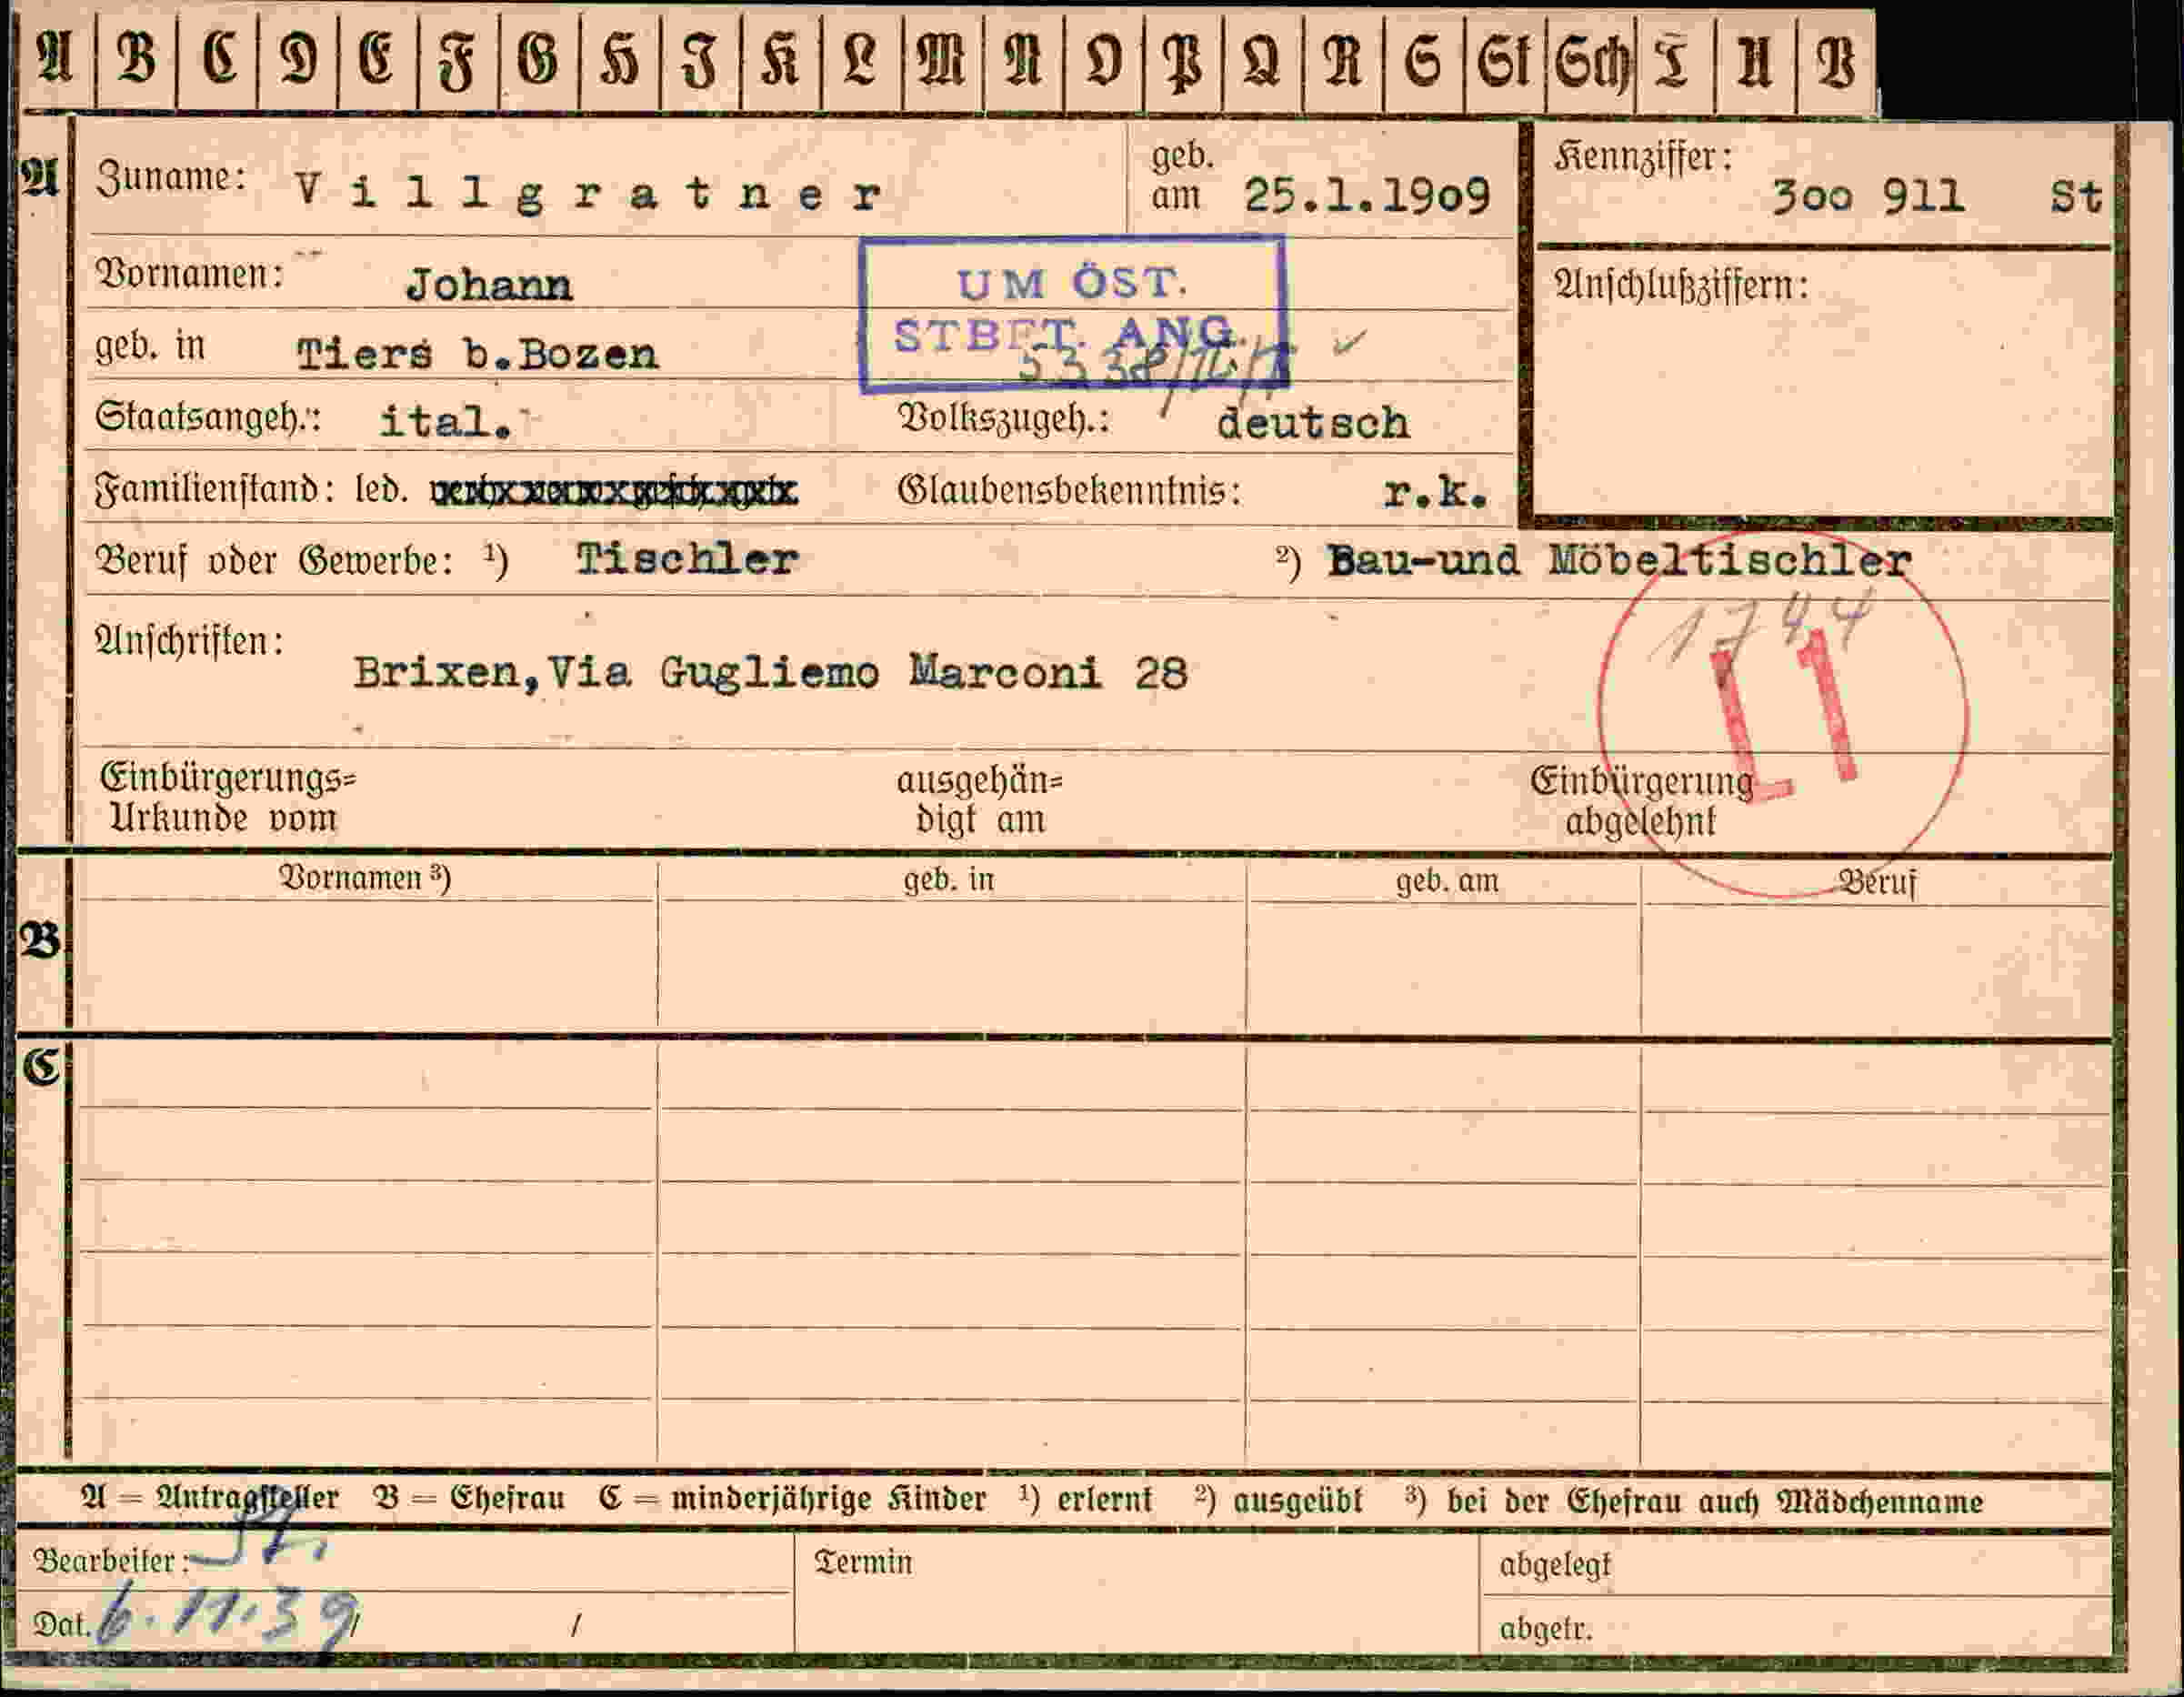 A B C D E F G H I K L M N O P Q R S St Sch T U V
A Zuname: Villgratner geb. am 25.1.1909 Kennziffer: 300 911 St
Vornamen: Johann UM ÖST. Anschlußziffern:
geb. in Tiers b.Bozen STBET. ANG.
Staatsangeh.: ital. Volkszugeh.: deutsch
Familienstand: led. Glaubensbekenntnis: r.k.
Beruf oder Gewerbe: ¹) Tischler ²) Bau-und Möbeltischler
1744
Anschriften: L1
Brixen, Via Gugliemo Marconi 28
Einbürgerungs= ausgehän= Einbürgerung
Urkunde vom digt am abgelehnt
Vornamen ³) geb. in geb. am Beruf
B
C
A = Antragsteller B = Ehefrau C = minderjährige Kinder ¹) erlernt ²) ausgeübt ³) bei der Ehefrau auch Mädchenname
Bearbeiter: Termin abgelegt
Dat. 6.11.39/ / abgetr.